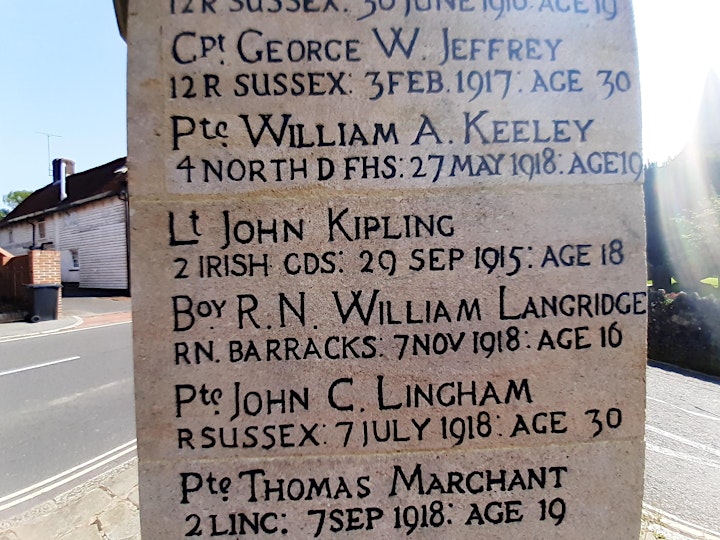 12 R SUSSEX: 30 JUNE 1916: AGE 19
Cpt GEORGE W. JEFFREY
12 R SUSSEX: 3 FEB. 1917: AGE 30
Pte WILLIAM A. KEELEY
4 NORTH'D FHS: 27 MAY 1918: AGE 19
Lt JOHN KIPLING
2 IRISH GDS: 29 SEP 1915: AGE 18
BOY R.N. WILLIAM LANGRIDGE
RN. BARRACKS: 7 NOV 1918: AGE 16
Pte JOHN C. LINGHAM
R SUSSEX: 7 JULY 1918: AGE 30
Pte THOMAS MARCHANT
2 LINC: 7 SEP 1918: AGE 19